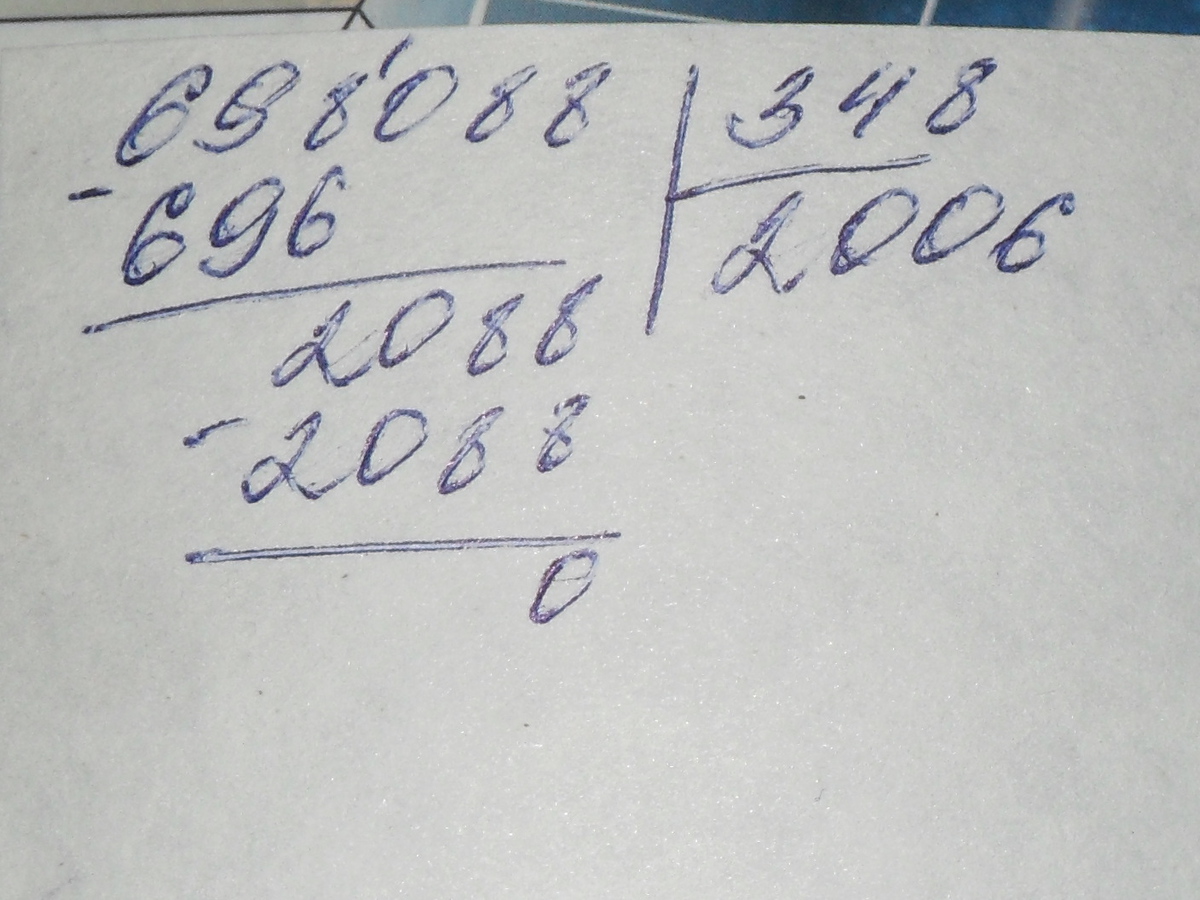 698088 348
- 696 2006
2088
- 2088
0